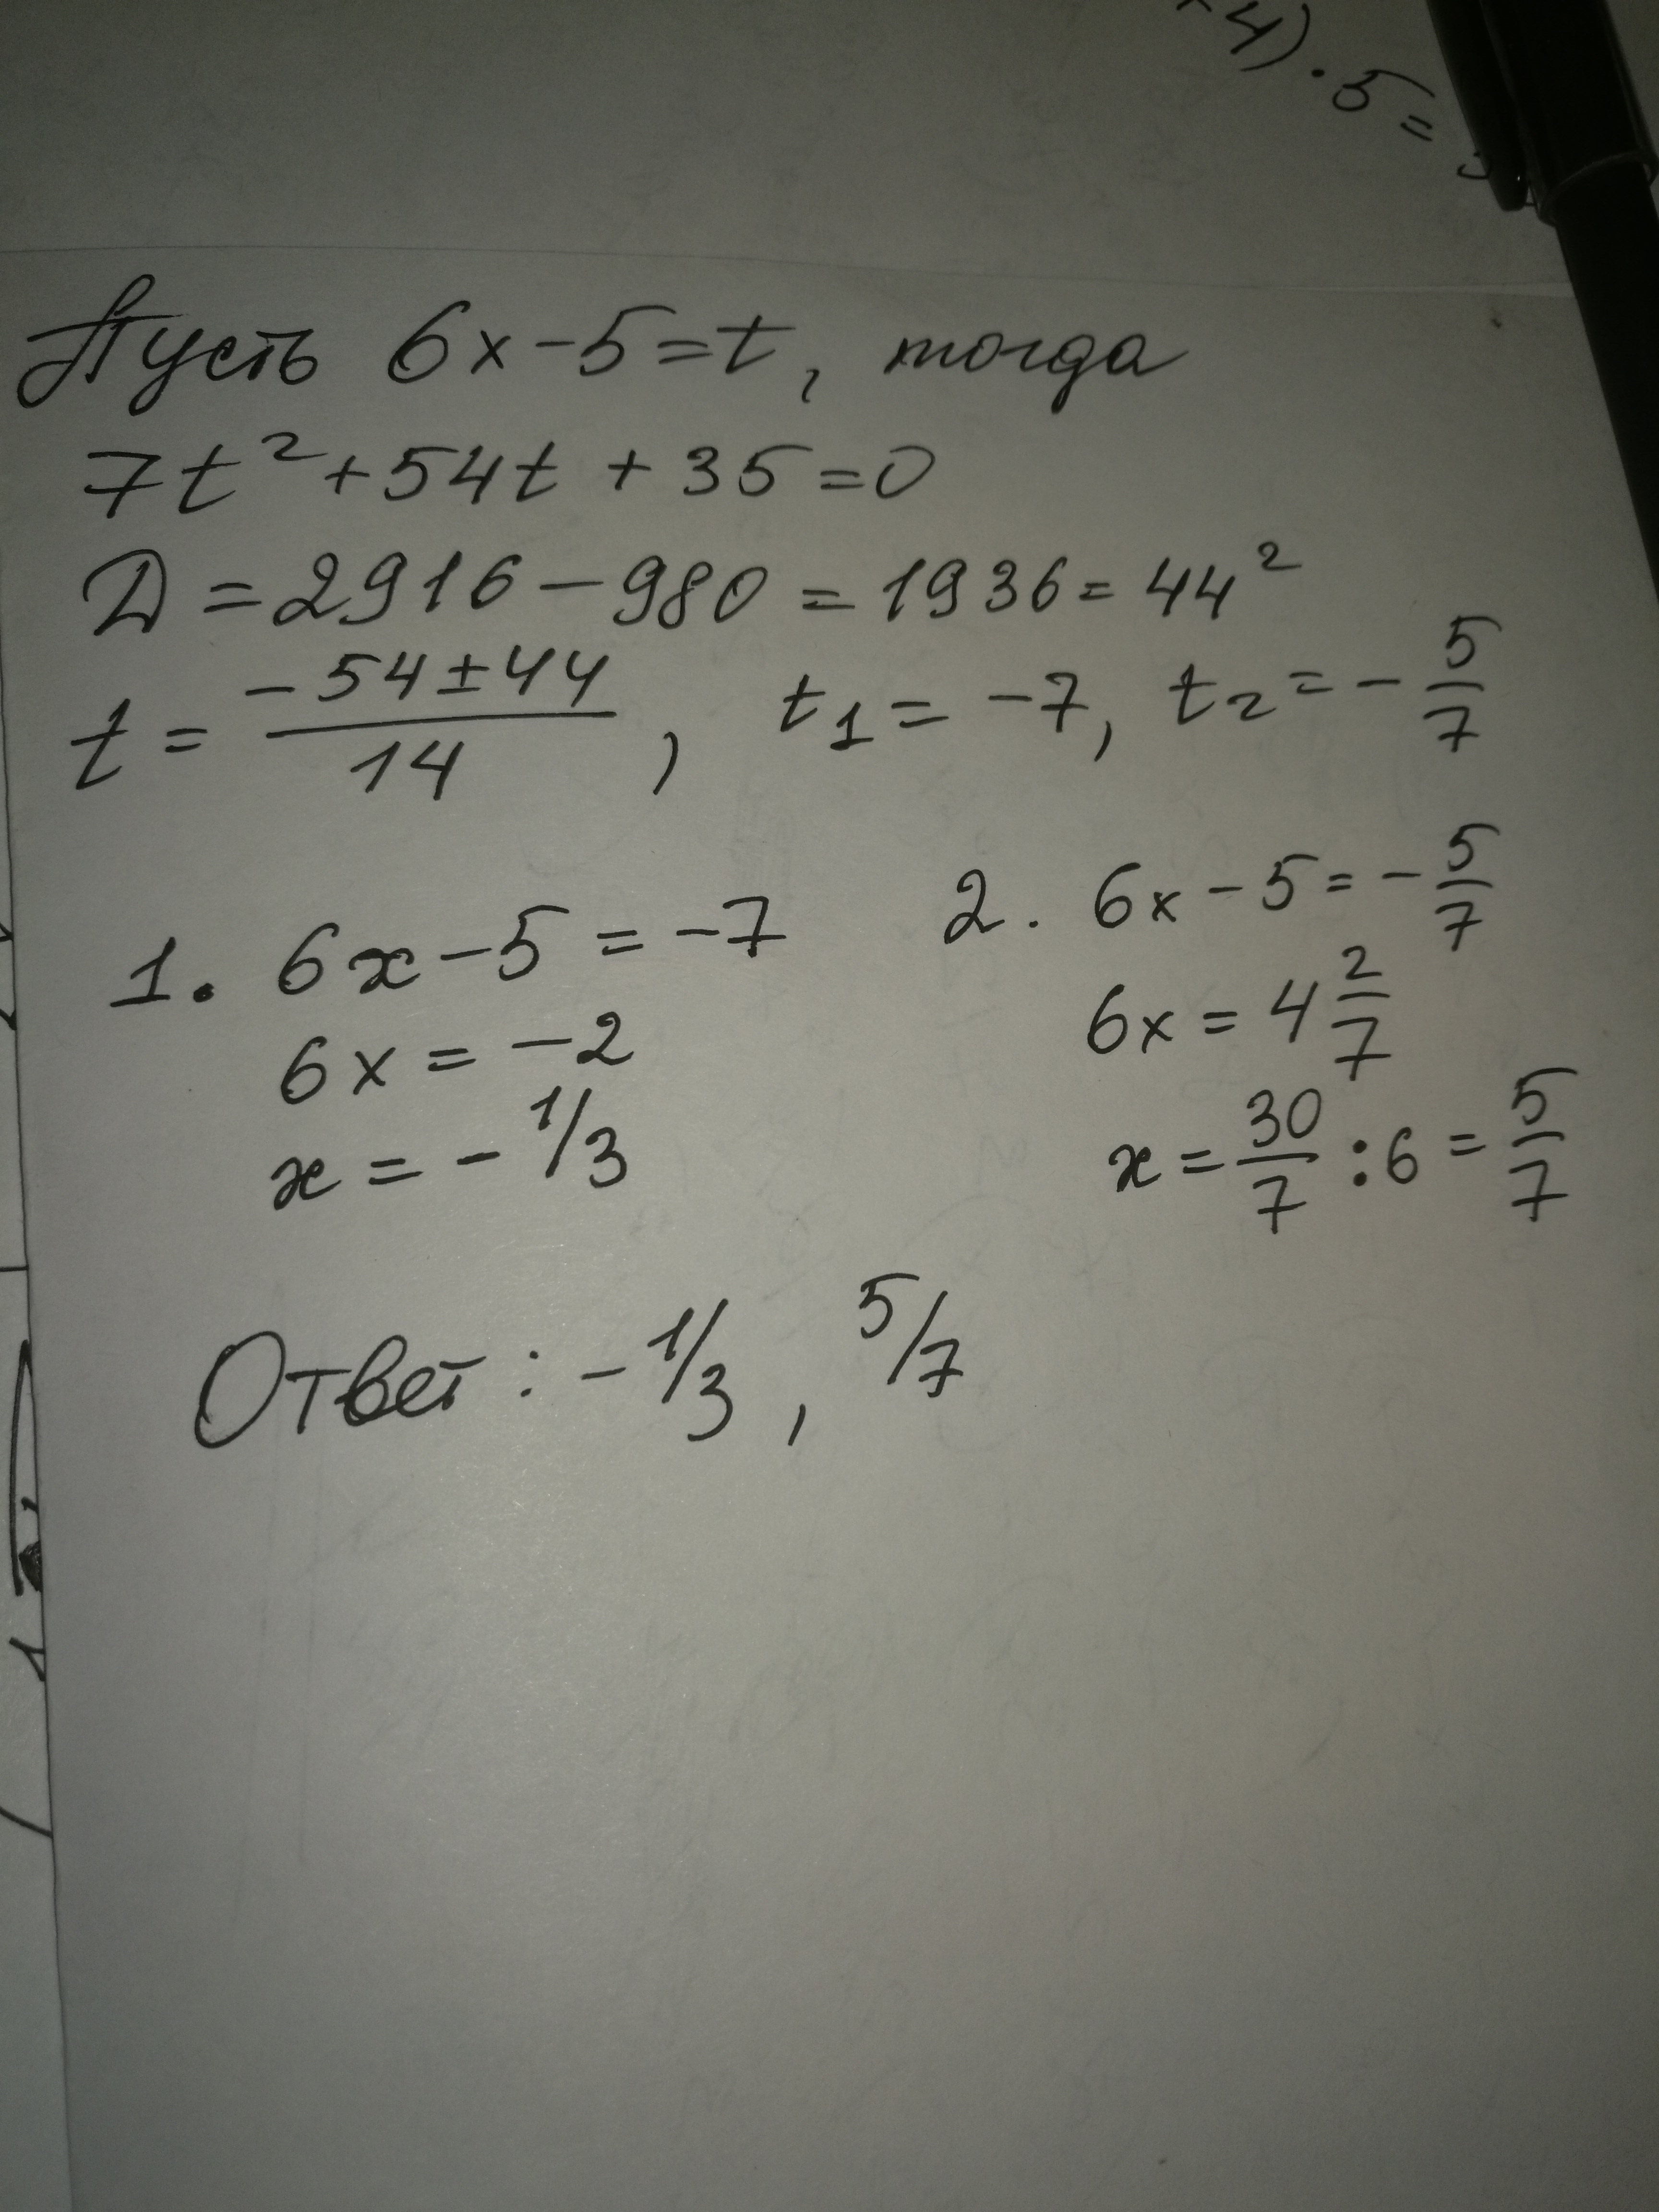 4) · 5 =
Пусть 6x-5=t, тогда
7t²+54t+35=0
D=2916-980=1936=44²
t = (-54±44)/14, t₁=-7, t₂=-5/7
1. 6x-5=-7
6x=-2
x=-1/3
2. 6x-5=-5/7
6x=4 2/7
x=30/7:6=5/7
Ответ: -1/3, 5/7